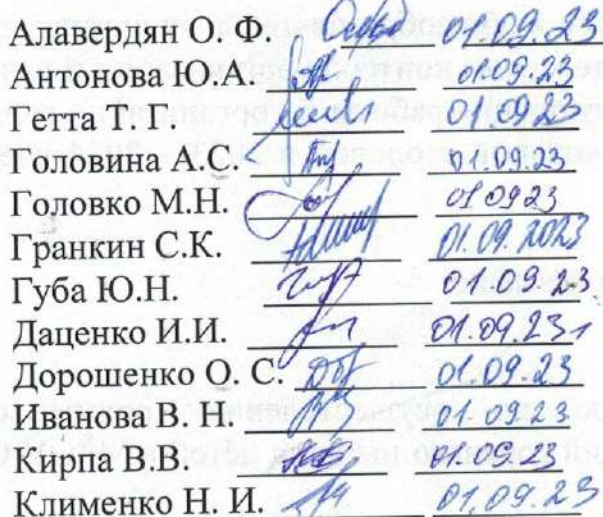 Алавердян О. Ф. 01.09.23
Антонова Ю.А. 01.09.23
Гетта Т. Г. 01.09.23
Головина А.С. 01.09.23
Головко М.Н. 01 09 23
Гранкин С.К. 01.09.2023
Губа Ю.Н. 01.09.23
Даценко И.И. 01.09.23
Дорошенко О. С. 01.09.23
Иванова В. Н. 01 09.23
Кирпа В.В. 01.09.23
Клименко Н. И. 01.09.23